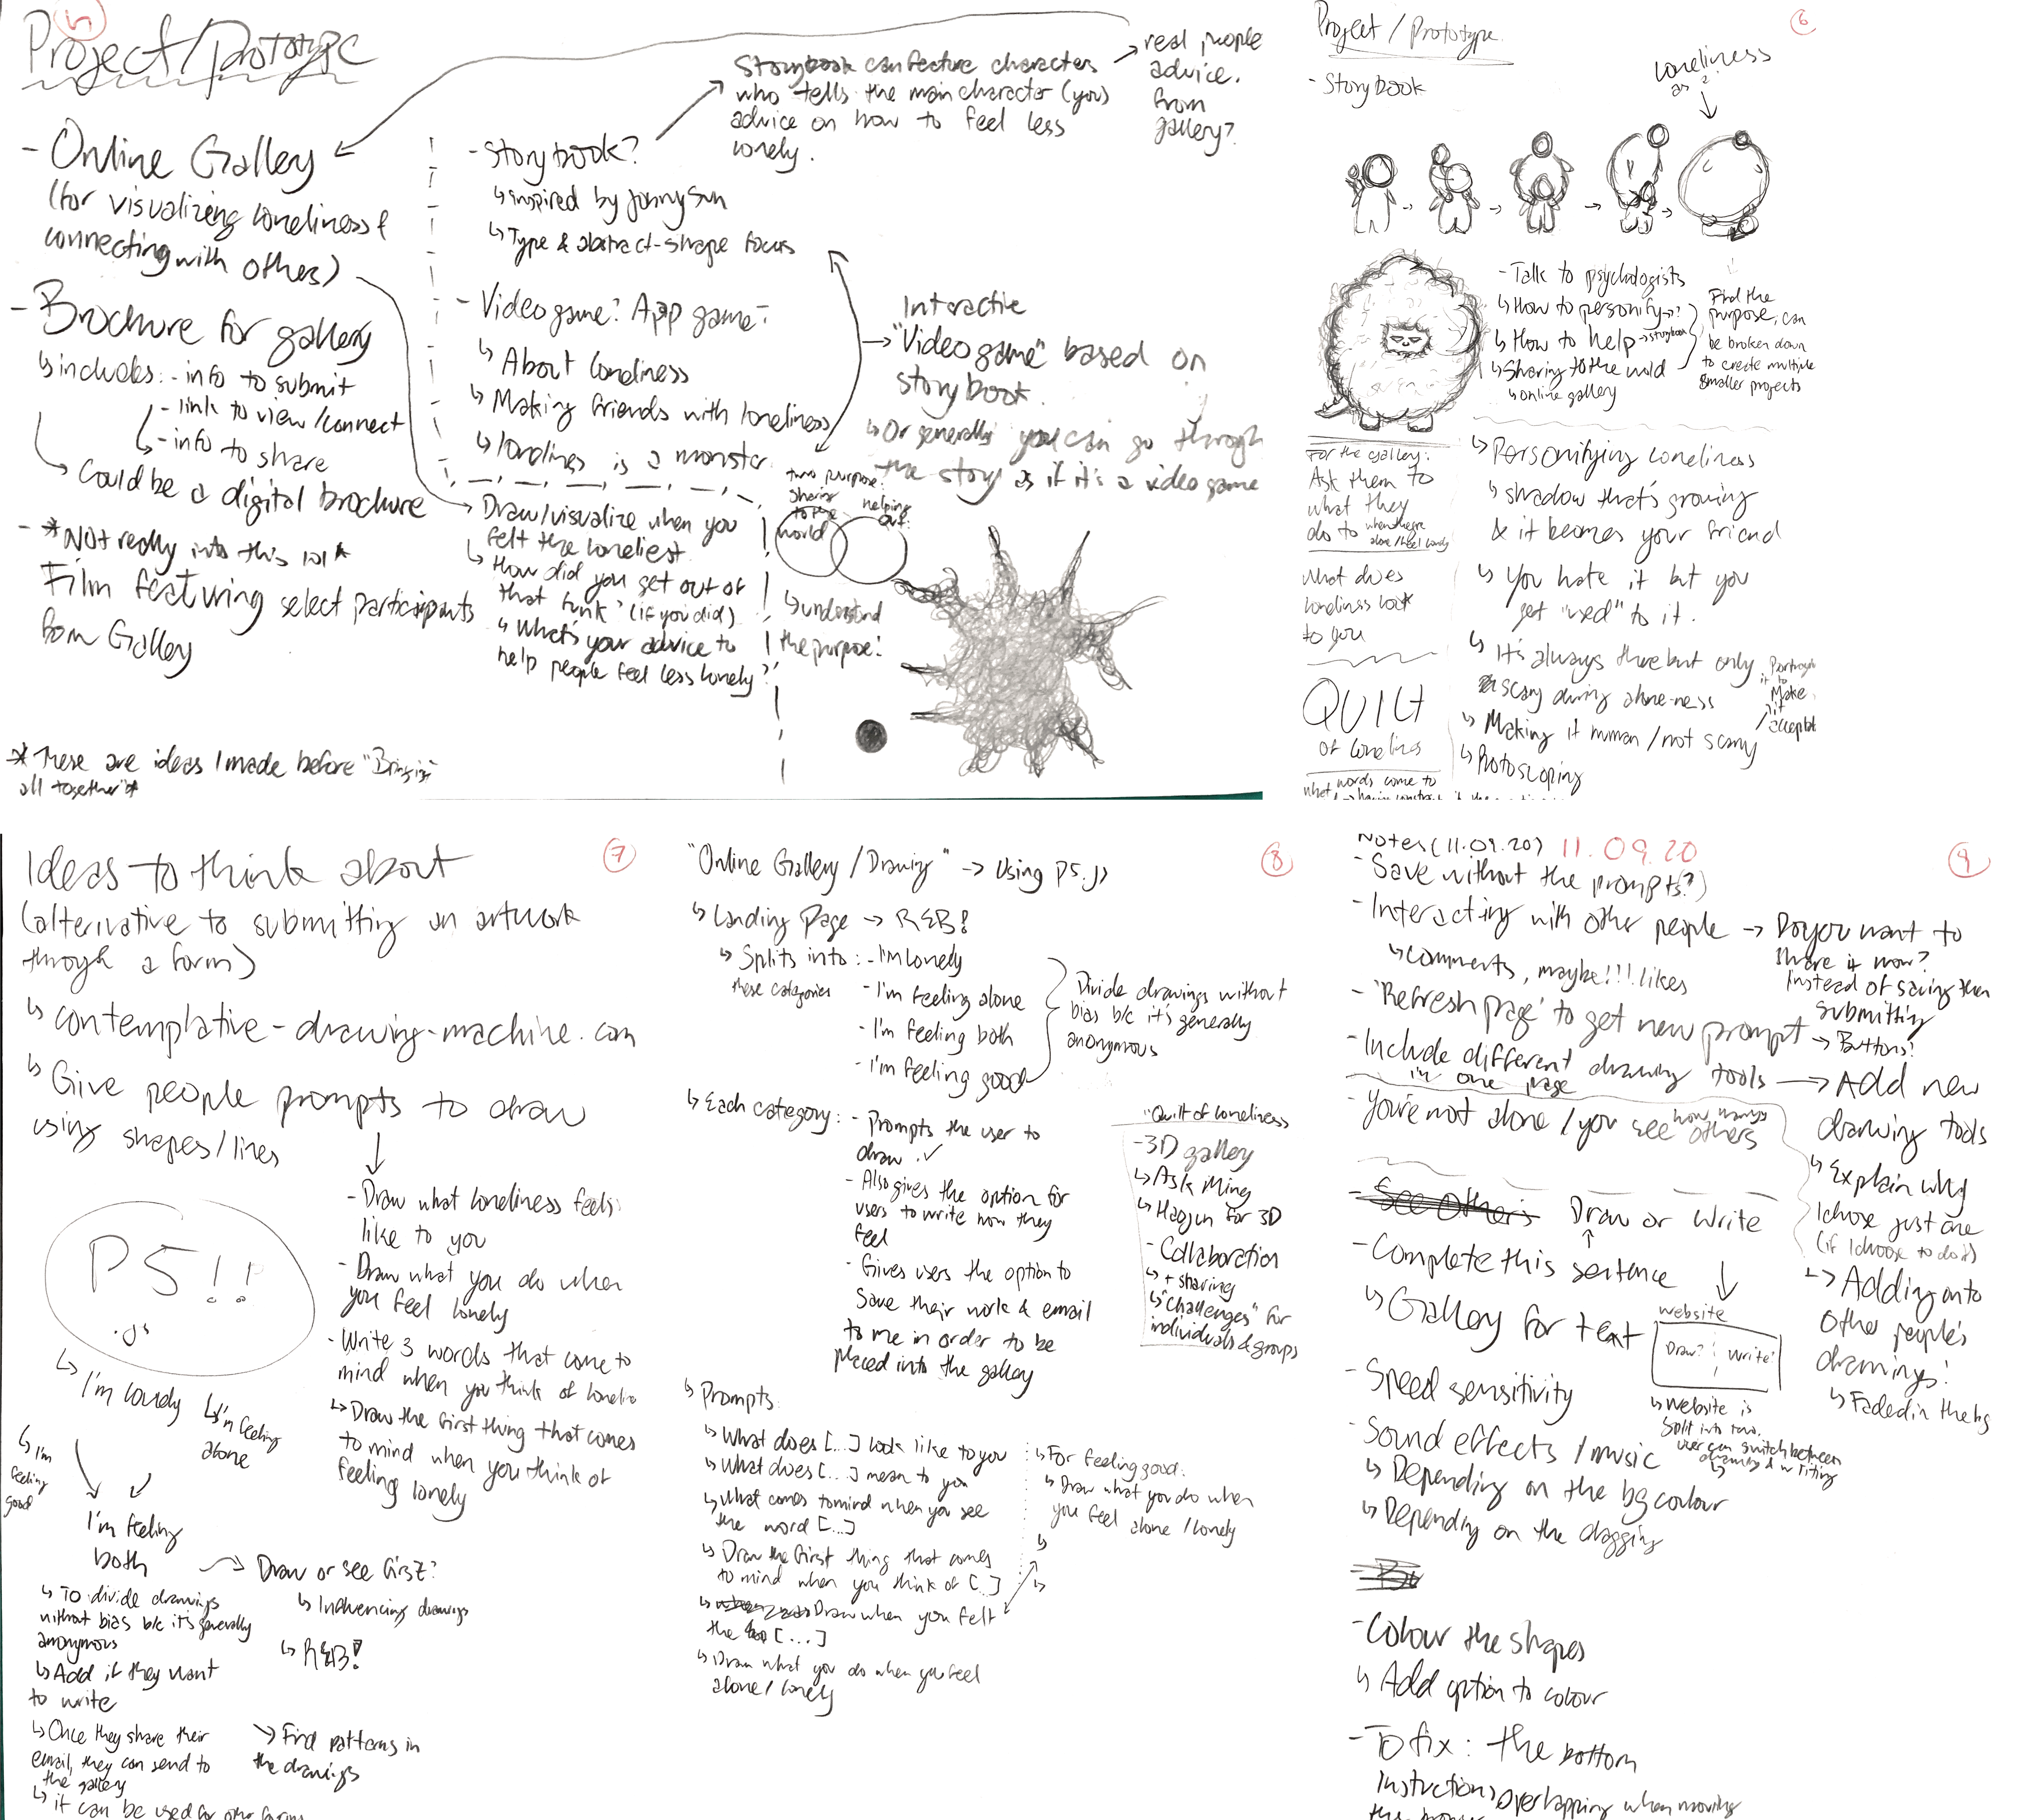 5
Project/Prototype
- Online Gallery
(for visualizing loneliness &
connecting with others)
- Brochure for gallery
↳ includes: - info to submit
- link to view/connect
- info to share
Could be a digital brochure
- *Not really into this lol*
Film featuring select participants
from Gallery
*These are ideas I made before "Bringing
all together"*
- Storybook?
↳ inspired by Jonny Sun
↳ Type & abstract-shape focus
Storybook can feature characters
who tells the main character (you)
advice on how to feel less
lonely.
real people
advice.
from
gallery?
- Video game? App game?
↳ About loneliness
↳ Making friends with loneliness
↳ loneliness is a monster
Interactive
"Video game" based on
storybook.
↳ Or generally you can go through
the story as if it's a video game
Draw/visualize when you
felt the loneliest
↳ How did you get out of
that funk? (if you did)
↳ What's your advice to
help people feel less lonely?
two purpose:
sharing
to the
world
helping
out
↳ understand
the purpose!
6
Project / Prototype
- Storybook
loneliness
as ?
- Talk to psychologists
↳ How to personify →?
↳ How to help → storybook
↳ Sharing to the world
↳ online gallery
Find the
purpose, can
be broken down
to create multiple
smaller projects
For the gallery:
Ask them to
what they
do to when they're
alone/feel lonely
What does
loneliness look
to you
QUILT
of loneliness
what words come to
↳ Personifying loneliness
↳ shadow that's growing
& it becomes your friend
↳ You hate it but you
get "used" to it.
↳ It's always there but only
scary during alone-ness
↳ Making it human/not scary
↳ Rotoscoping
Portrayal
it to
Make
it
acceptable
7
Ideas to think about
(alternative to submitting an artwork
through a form)
↳ contemplative-drawing-machine.com
↳ Give people prompts to draw
using shapes/lines
- Draw what loneliness feels
like to you
- Draw what you do when
you feel lonely
- Write 3 words that come to
mind when you think of loneliness
↳ Draw the first thing that comes
to mind when you think of
feeling lonely
P5!!
.js
↳ I'm lonely
↳ I'm feeling
alone
↳ I'm
feeling
good
I'm feeling
both
Draw or see first?
↳ Influencing drawings
↳ R&B!
↳ To divide drawings
without bias b/c it's generally
anonymous
↳ Add if they want
to write
↳ Once they share their
email, they can send to
the gallery
↳ it can be used for other forms
Find patterns in
the drawings
8
"Online Gallery / Drawing" → Using P5.js
↳ Landing Page → R&B!
↳ Splits into:
these categories
- I'm lonely
- I'm feeling alone
- I'm feeling both
- I'm feeling good
Divide drawings without
bias b/c it's generally
anonymous
↳ Each category:
- Prompts the user to
draw ✓
- Also gives the option for
users to write how they
feel
- Gives users the option to
save their work & email
to me in order to be
placed into the gallery
"Quilt of loneliness
- 3D gallery
↳ Ask Ming
↳ Haojun for 3D
- Collaboration
↳ + sharing
↳ "Challenges" for
individuals & groups
↳ Prompts
↳ What does [...] look like to you
↳ What does [...] mean to you
↳ What comes to mind when you see
the word [...]
↳ Draw the first thing that comes
to mind when you think of [...]
↳ Draw when you felt
the [...]
↳ Draw what you do when you feel
alone/lonely
↳ For feeling good:
↳ Draw what you do when
you feel alone/lonely
9
Notes (11.09.20) 11.09.20
- Save without the prompts(?)
- Interacting with other people → Do you want to
share it now?
Instead of saving then
submitting
↳ Comments, maybe!!! likes
- 'Refresh page' to get new prompt → Buttons!
- Include different drawing tools → Add new
in one page
drawing tools
↳ Explain why
I chose just one
(if I choose to do it)
↳ Adding onto
other people's
drawings!
↳ Faded in the bg
- You're not alone / you see how many others
- See others Draw or Write
- Complete this sentence
↳ Gallery for text
website
Draw? Write?
↳ Website is
split into two.
user can switch between
drawing & writing
- Speed sensitivity
- Sound effects / music
↳ Depending on the bg colour
↳ Depending on the dragging
- Colour the shapes
↳ Add option to colour
- To fix: the bottom
instructions overlapping when moving
the browser